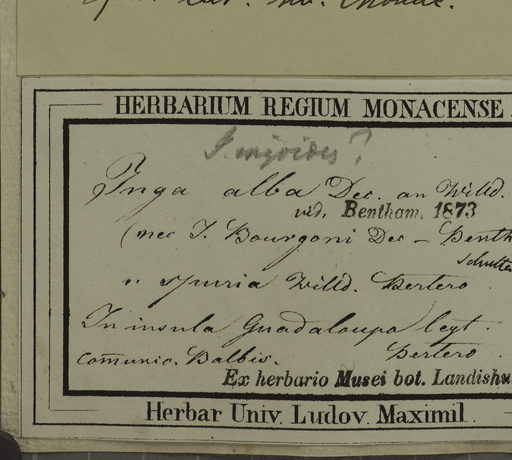 HERBARIUM REGIUM MONACENSE
I. ingoides?
Inga alba Dec. an Willd.
vid. Bentham. 1873
(nec I. Bourgoni Dec - Benth
Schultes
v. spuria Willd. Bertero
In insula Guadaloupa legt.
comunic. Balbis. Bertero.
Ex herbario Musei bot. Landishu
Herbar Univ. Ludov. Maximil.